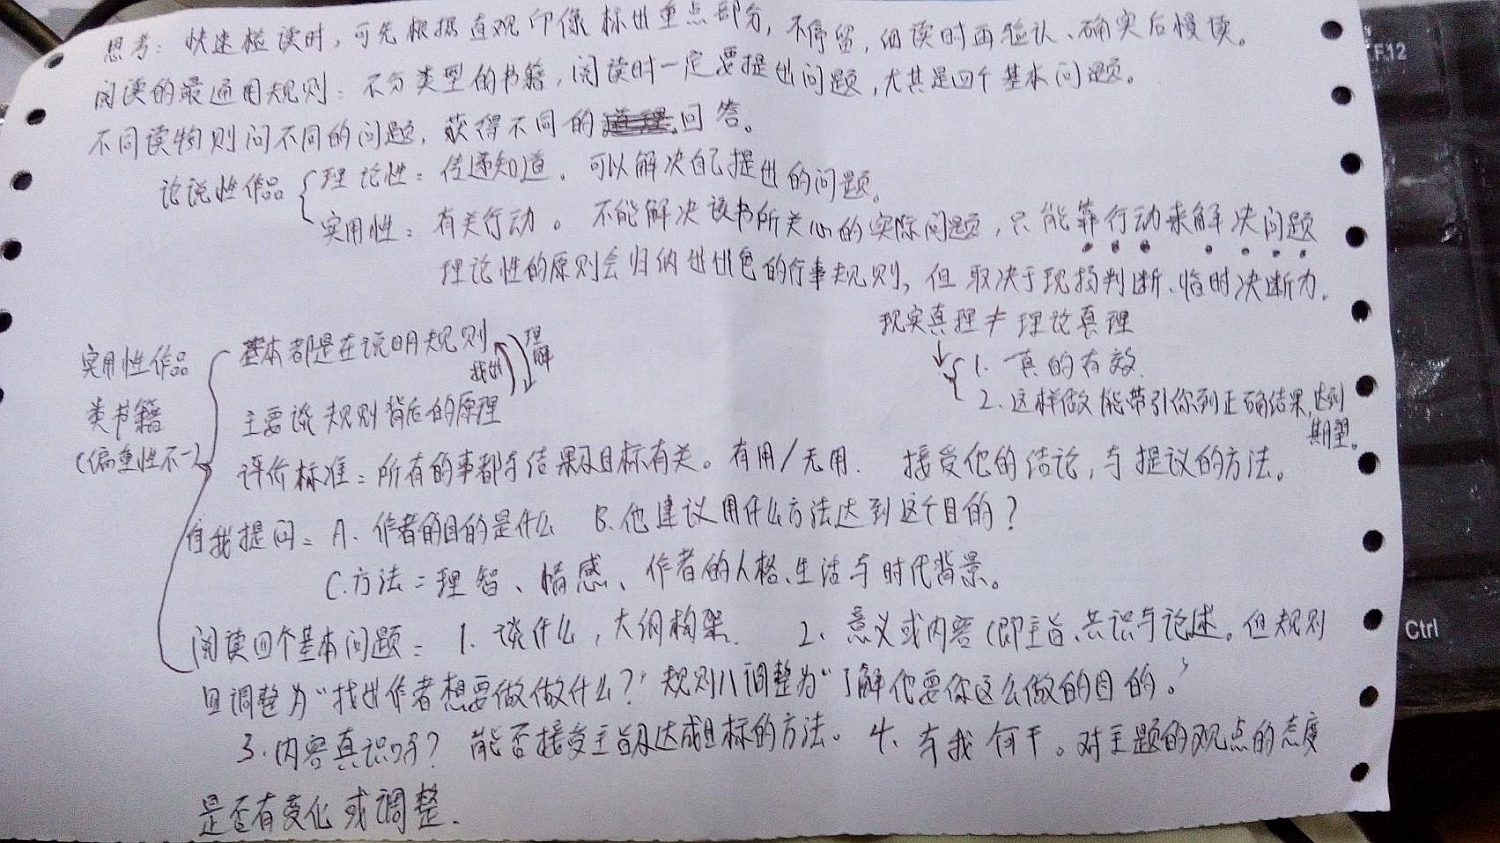 思考：快速检读时，可先根据直观印像标出重点部分，不停留，细读时再验认、确实后慢读。
阅读的最通用规则：不分类型的书籍，阅读时一定要提出问题，尤其是四个基本问题。
不同读物则问不同的问题，获得不同的回答。
论说性作品
理论性：传递知道。可以解决自己提出的问题。
实用性：有关行动。不能解决该书所关心的实际问题，只能靠行动来解决问题
理论性的原则会归纳出出色的行事规则，但取决于现场判断、临时决断力。
现实真理≠理论真理
1. 真的有效
2. 这样做能带引你到正确结果，达到
期望。
实用性作品
类书籍
（偏重性不一）
基本都是在说明规则
找出
理解
主要说规则背后的原理
评价标准：所有的事都与结果及目标有关。有用/无用. 接受他的结论，与提议的方法。
自我提问：A. 作者的目的是什么 B. 他建议用什么方法达到这个目的？
C. 方法：理智、情感、作者的人格、生活与时代背景。
阅读四个基本问题：1. 谈什么，大纲构架. 2. 意义或内容（即主旨、共识与论述。但规则
且调整为“找出作者想要做做什么？”规则八调整为“了解他要你这么做的目的。”
3. 内容真识吗？能否接受主旨及达成目标的方法。4. 与我何干。对主题的观点的态度
是否有变化或调整.
F12
Ctrl